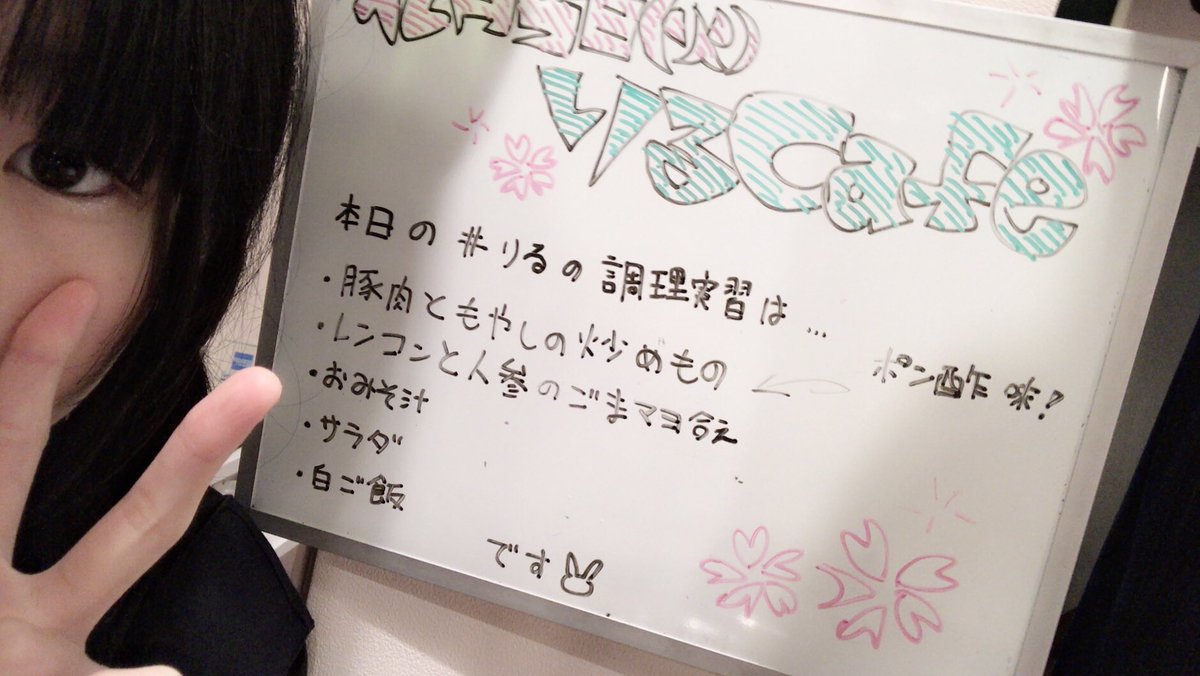 りるCafe
本日の #りるの調理実習は...
・豚肉ともやしの炒めもの ← ポン酢味!
・レンコンと人参のごまマヨ合え
・おみそ汁
・サラダ
・白ご飯
です